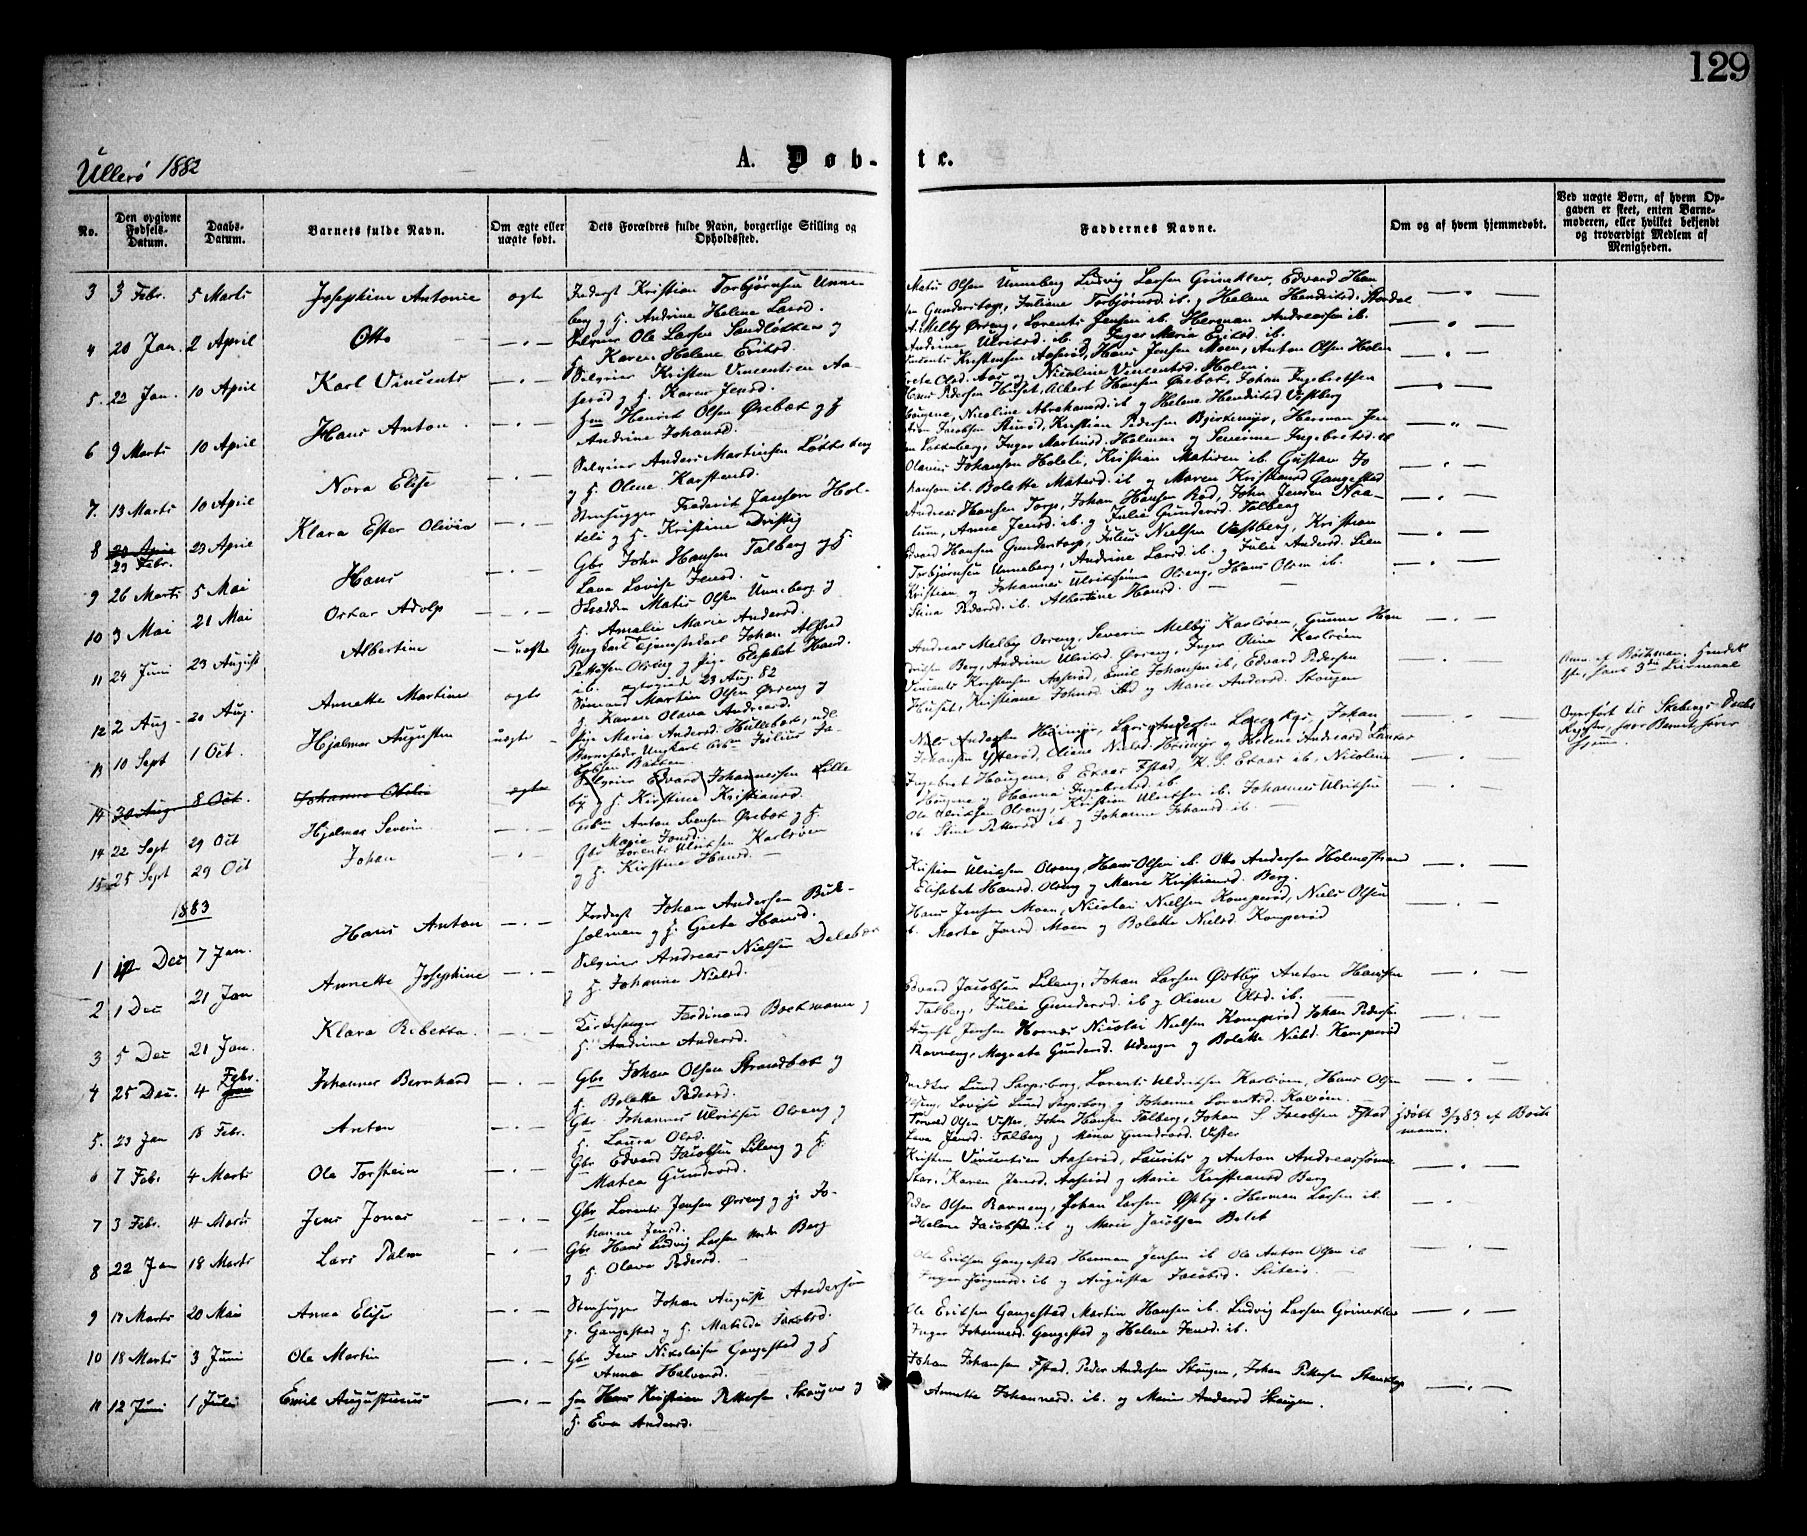 129
Ullerø 1882
A. Døb-te.
No.
Den opgivne Fødsels-Datum.
Daabs-Datum.
Barnets fulde Navn.
Om ægte eller uægte født.
Dets Forældres fulde Navn, borgerlige Stilling og Opholdssted.
Faddernes Navne.
Om og af hvem hjemmedøbt.
Ved uægte Børn, af hvem Opgaven er skeet, enten Barnemoderen, eller hvilket bekjendt og troværdigt Medlem af Menigheden.
3 3 Febr. 5 Marts Josephine Antonie ægte Kristian Torbjørnsen Unne-
berg g H. Andrine Helene Larsd.
Matis Olsen Unneberg Ludvig Larsen Grinakler, Edvard Han
sen Gunderstorp, Juliane Torbjørnsd. ib. g Helene Hendriksd. Stordal
4 20 Jan. 2 April Otto Selveier Ole Larsen Sandløkken g
H. Karen Helene Eriksd.
A. Melby Ørreng, Lorents Jensen ib. Herman Andreassen ib.
Andrine Ulriksd. ib. g Inger Maria Eriksd. ib.
5. 22 Jan. 10 April Karl Vincents Selveier Kristen Vincentsen Aa-
serød g H. Karen Jensd.
Vincents Kristensen Aaserød, Hans Jensen Moen, Anton Olsen Holm
Olsd. Aas g Nicoline Vincentsd. Holm.
6 9 Marts 10 April Hans Anton Henrik Olsen Ørebæk g H
Andrine Johansd.
Hans Pedersen Huset, Albert Hansen Ørebæk, Johan Ingebretsen
Haugene, Nicoline Abrahamsd. ib g Helene Hendriksd Vestberg
7. 13 Marts 10 April Nora Elise Selveier Anders Martinsen Løkkeberg
g H. Olene Karstensd.
Jacobsen Sturød, Kristian Pedersen Bjerkemyr, Herman Jen
sen Løkkeberg, Inger Martinsd. Holmen g Severine Ingebretsd. ib
8 23 Febr. 23 April Klara Ester Olivia Stenhugger Frederik Jansen Hol-
teli g H. Kristine Dristig
Olavus Johansen Holeli, Kristian Matisen ib. Gustav Jo
hansen ib. Bolette Matisd. ib g Maren Kristiansd Gangestad
9 26 Marts 5 Mai Hans Gbr John Hansen Talberg g H.
Lava Lovise Jensd.
Andreas Hansen Torp, Johan Hansen Rød, John Jensen Naa-
lum, Anne Jensd. ib. g Julie Gundersd. Talberg
10 3 Mai 21 Mai Oskar Adolf Skrædder Matis Olsen Unneberg g
H. Amalie Marie Andersd.
Edvard Hansen Gunderstorp, Julius Nielsen Vestberg, Kristian
Torbjørnsen Unneberg, Andrine Larsd. ib. g Julie Andersd. Lien
11 24 Juni 23 August Albertine uægte Ungkarl Tjenstekarl Johan Alfred
Pettersen Olsreng g Pige Elisabet Hansd.
ib. ægteviede 23 Aug. 82
Kristian g Johannes Ulriksønner Olsreng, Hans Olsen ib.
Stina Pedersd. ib. Albertine Hansd.
12 2 Aug. 20 Aug. Annette Martine ægte Sømand Martin Olsen Ørreng g
H. Karen Olava Andreasd.
Andreas Melby Ørreng, Severin Melby Karlsøen, Gunne Hen
driksen Berg, Andrine Ulriksd. Ørreng, Inger Oline Karlsøen
13 10 Sept 1 Oct. Hjalmar Augustin uægte Pige Maria Andersd. Hullebæk, udl.
Barnefader Ungkarl Arbm Julius Ja-
cobsen Bakken
Vincents Kristensen Aaserød, Emil Johansen ib, Edvard Pedersen
Huset, Kristiane Johnsd. ibd g Marie Andersd. Skougen
14 30 Aug 8 Oct. Johanne Otilie ægte Selveier Edvard Johannessen Lille
by g H. Kirstine Kristiansd.
Niels Andersen Heiemyr, Lars Andersen Løkeker, Johan
Johansen Ysterød, Oliane Nielsd. Heiemyr g Helene Andreasd Løkeker
14 22 Sept 29 Oct Hjalmar Severin Arbm Anton Jensen Ørebæk g H.
Marie Jonsd.
Ingebret Haugene, E Evaas Fstad, K. S. Evaas ib, Nicolene
Haugene g Hanna Ingebretsd. ib
15 25 Sept 29 Oct Johan Gbr Lorents Ulriksen Karlsøen
g H. Kirstine Hansd.
Ole Ulriksen Olsreng, Kristian Ulriksen ib. Johannes Ulriksen
ib. Stine Pettersd ib g Johanne Johansd ib.
1883
1 Dec 7 Jan. Hans Anton Johan Andersen Buk-
holmen g H. Grete Hansd.
Kristian Ulriksen Olsreng, Hans Olsen ib. Otto Andersen Holmestrand
Elisabet Hansd. Olsreng g Marie Kristiansd. Berg.
2 1 Dec 21 Jan Annette Josephine Selveier Andreas Nielsen Delebæk
g H. Johanne Nielsd.
Hans Jensen Moen, Nicolai Nielsen Kamperød, Niels Olsen
ib. Marta Jonsd Moen g Bolette Nielsd Kamperød
3 5 Dec 21 Jan. Klara Rebekka. Kirkesanger Ferdinand Bockmann g
H. Andrine Andersd.
Edvard Jacobsen Lileng, Johan Larsen Østby Anton Hansen
Talberg, Julie Gundersd. ib g Oliane Olsd. ib.
4 25 Dec. 4 Febr. Johannes Bernhard Gbr Johan Olsen Strandbæk g
H. Bolette Pedersd.
August Jensen Hornes Nicolai Nielsen Kamperød Johan Pedersen
Ravneng, Magreta Gundersd. Udenger g Bolette Nielsd. Kamperød
5. 23 Jan 18 Febr. Anton Gbr. Johannes Ulriksen Olsreng g
H. Laura Olsd.
Lund Sarpsborg, Lorents Uldriksen Karlsøen, Hans Olsen
Olsreng, Lovise Lund Sarpsborg g Johanne Lorentsd. Karlsøen.
6 7 Feb. 4 Marts Ole Torstein Gbr Edvard Jacobsen Lileng g H.
Matea Gundersd.
Torvald Olsen Vister, John Hansen Talberg, Johan S Jacobsen Fstad
Lava Jensd. Talberg g Mina Gundersd. Vister
hjdøbt 3/3 83 af Bock
mann.
7 3 Febr. 4 Marts Jens Jonas Gbr Lorents Jensen Ørreng g H. Jo-
hanne Jensd.
Kristen Vincentsen Aaserød, Laurits g Anton Andreassønner
Karen Jensd. Aaserød g Marie Kristiansd Berg
8 22 Jan 18 Marts Lars Palm Gbr Hans Ludvig Larsen nedre Berg
g H. Olava Pedersd.
Peder Olsen Ravneng, Johan Larsen Østby Herman Larsen ib.
Helene Jacobsen ib g Marie Jacobsen Bolet
9 17 Marts 20 Mai Anna Elise Stenhugger Johan August Andersen
g. Gangestad g H. Matilda Jakobsd.
Ole Eriksen Gangestad Herman Jensen ib Ole Anton Olsen ib
Inger Jørgensd. ib g Augusta Jacobsd.
10 18 Marts 3 Juni Ole Martin Gbr Jens Nikolaisen Gangestad g H
Anna Halvorsd.
Ole Eriksen Gangestad Martin Hansen ib. Ludvig Larsen Grinakler
Inger Johannesd. Gangestad g Helene Jensd. ib.
11 12 Juni 1 Juli Emil Augustinus Hans Kristian Pettersen Skougen g
H. Eva Andersd.
Johan Johansen Fstad, Peder Andersen Skougen, Johan Pettersen
Annette Johannesd. ib. g Marie Andersd Skougen.
Overført til Skebergs Daabs
Register, hvor Barnet hører
hjemme.